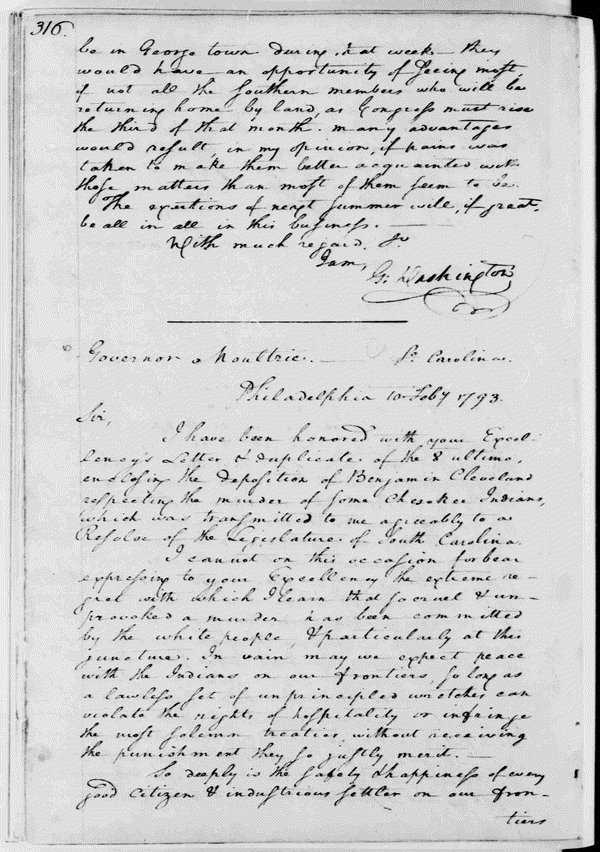 316.
be in George town during that week – they
would have an opportunity of seeing most,
if not all the Southern members who will be
returning home by land, as Congress must rise
the third of that month. many advantages
would result, in my opinion, if pains was
taken to make them better acquainted with
those matters than most of them seem to be.
The exertions of next summer will, if great,
be all in all in this business. —
With much regard, &c
I am,
Go: Washington
Governor Moultrie. — So. Carolina.
Philadelphia 10 Feby 1793.
Sir,
I have been honored with your Excel-
lency's Letter & duplicate of the 8 ultimo,
enclosing the Deposition of Benjamin Cleveland
respecting the murder of some Cherokee Indians,
which was transmitted to me agreeably to a
Resolve of the Legislature of South Carolina.
I cannot on this occasion forbear
expressing to your Excellency the extreme re-
gret with which I learn that so cruel & un-
provoked a murder has been committed
by the white people, & particularly at this
juncture. In vain may we expect peace
with the Indians on our frontiers, so long as
a lawless set of unprincipled wretches can
violate the rights of hospitality or infringe
the most solemn treaties, without receiving
the punishment they so justly merit. —
So deeply is the safety & happiness of every
good Citizen & industrious settler on our fron-
tiers